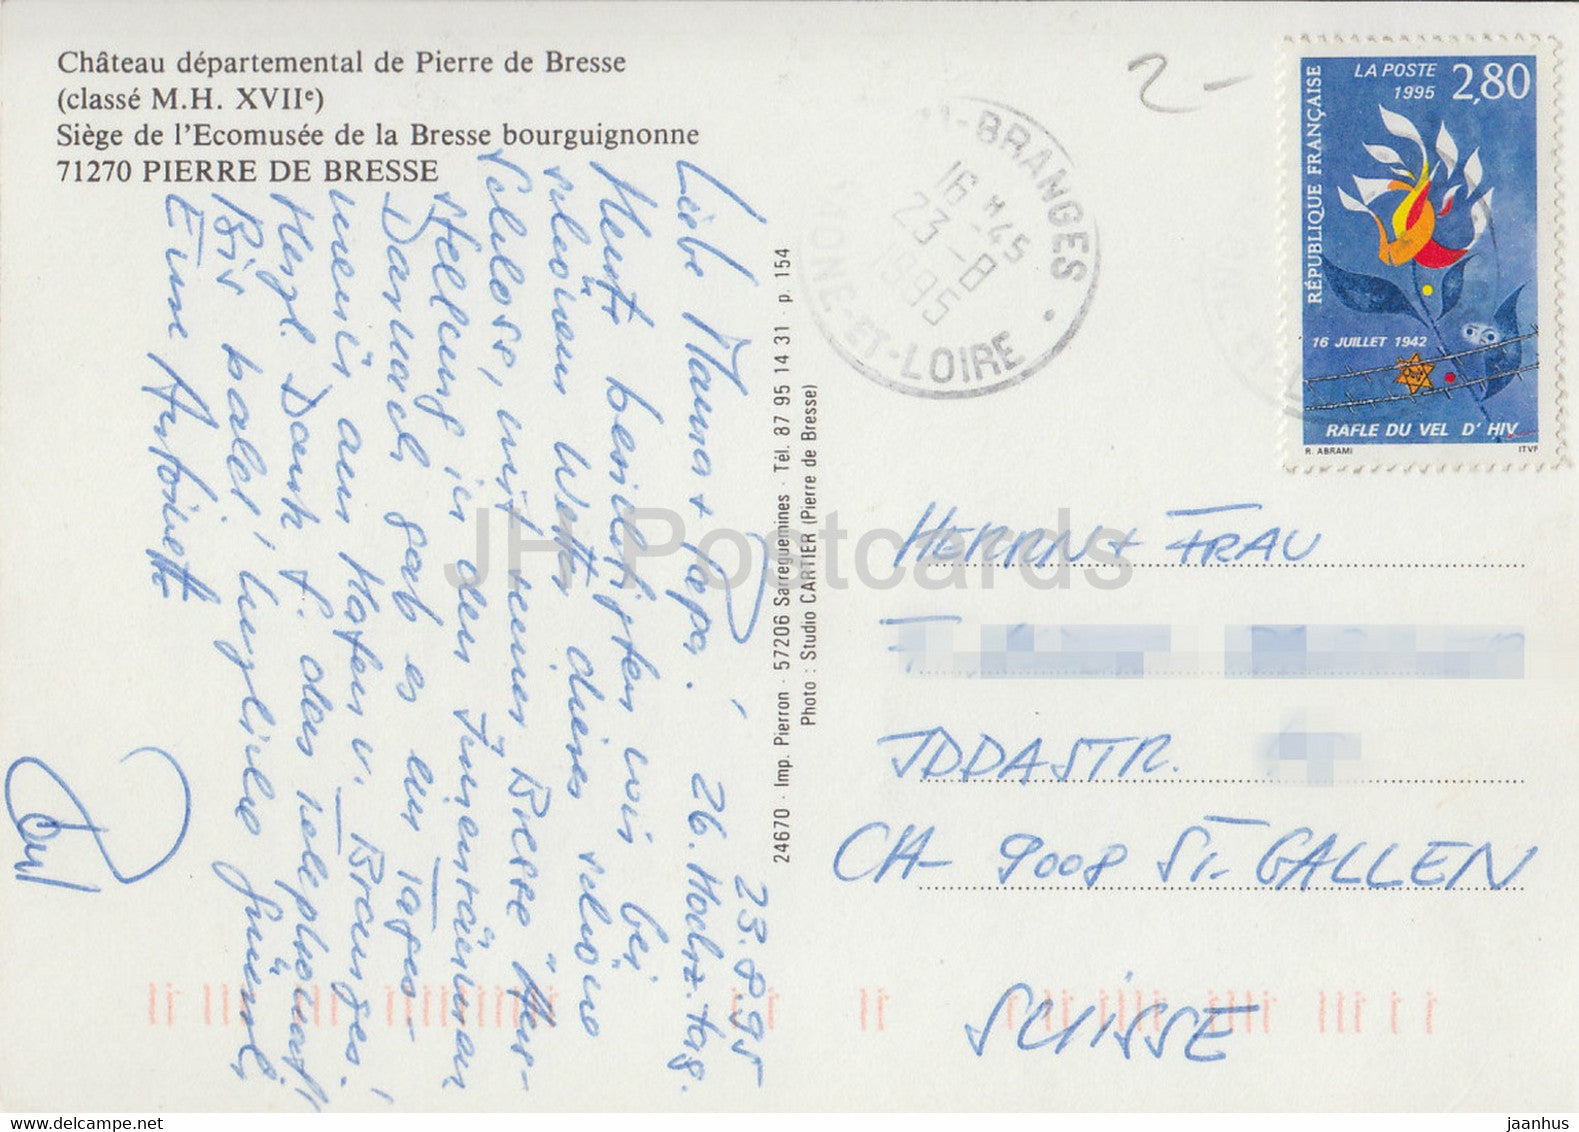 Château départemental de Pierre de Bresse
(classé M.H. XVIIe)
Siège de l'Ecomusée de la Bresse bourguignonne
71270 PIERRE DE BRESSE
23.8.95
Liebe Mama + Papa! 26. Hochz.tag.
Heute besichtigten wir bei
schönem Wetter dieses schöne
Schloss, mit seiner Bresse Aus-
stellung in den Innenräumen
Danach gab es ein Tages-
menü am Hafen v. Branges!
Herzl. Dank f. das Telephonat!
Bis bald, herzliche Grüsse
Eure Antoinette
24670 · Imp. Pierron · 57206 Sarreguemines · Tél. 87 95 14 31 · p. 154
Photo : Studio CARTIER (Pierre de Bresse)
2-
-BRANGES
16 H 45
23-8
1995
ONE-ET-LOIRE
RÉPUBLIQUE FRANÇAISE
LA POSTE
1995
2,80
16 JUILLET 1942
RAFLE DU VEL D'HIV
R. ABRAMI
ITVF
HERRN + FRAU
IDDASTR.
CH- 9008 ST. GALLEN
SUISSE
JH Postcards
www.delcampe.net
jaanhus